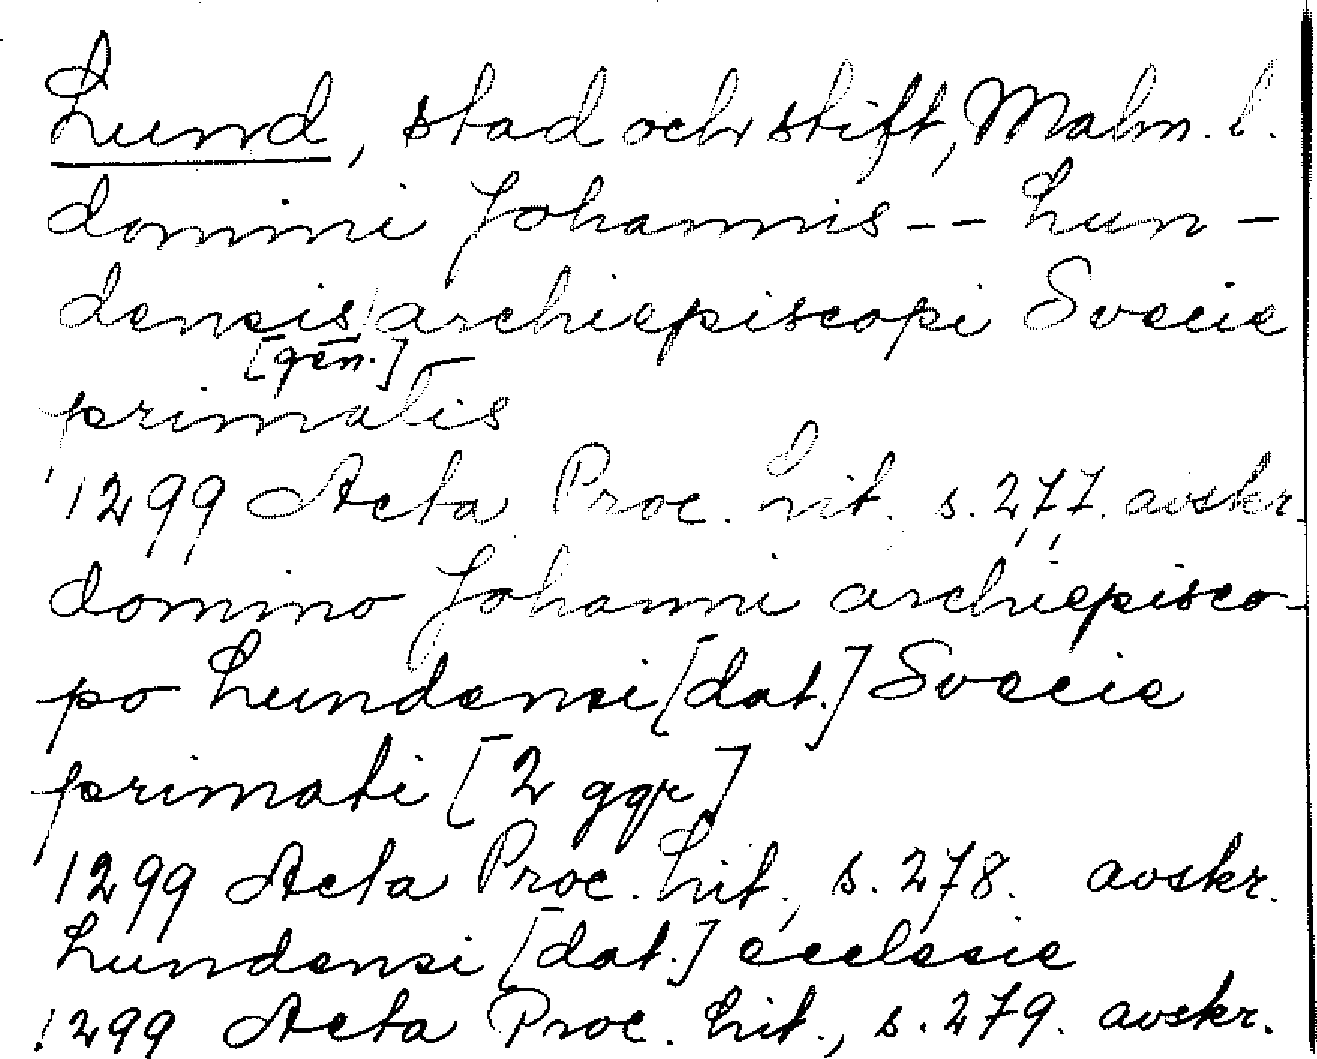 Lund, stad och stift, Malm. l.
domini Johannis -- Lun-
densis archiepiscopi Svecie
[gen.]
primatis
1299 Acta Proc. Lit. s. 277. avskr.
domino Johanni archiepisco-
po Lundensi [dat.] Svecie
primati [2 ggr]
1299 Acta Proc. Lit., s. 278. avskr.
Lundensi [dat.] ecclesie
1299 Acta Proc. Lit., s. 279. avskr.